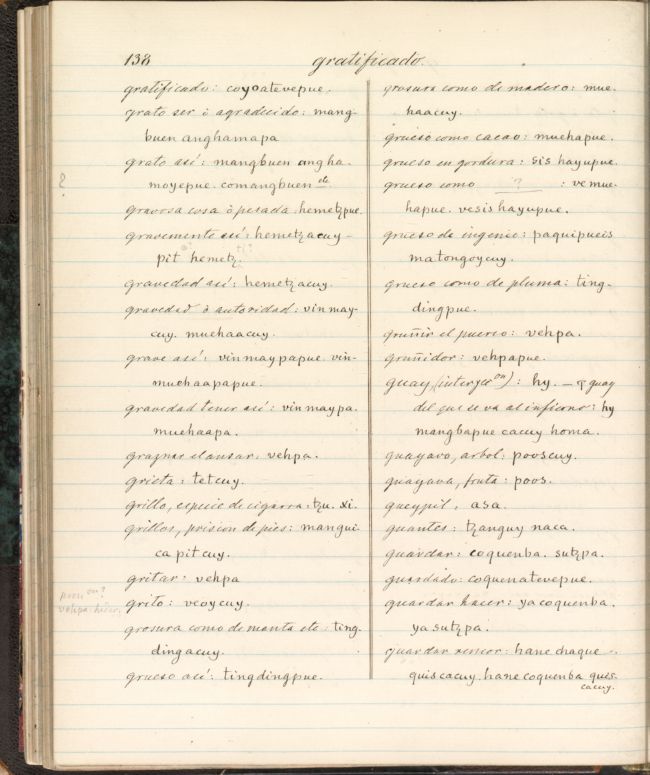 138 gratificado.
gratificado: coyoatevepue.
grato ser ò agradecido: mang-
buen anghamapa
grato asi: mangbuen angha.
moyepue. comangbuen etc
gravosa cosa ò pesada: hemetzpue.
gravemente asi: hemetzacuy-
pit hemetz.
gravedad asi: hemetzacuy.
gravedad ò autoridad: vin may-
cuy. muehaacuy.
grave asi: vin may papue. vin-
muehaapapue.
gravedad tener asi: vin maypa.
muehaapa.
graznar el ansar: vehpa.
grieta: tetcuy.
grillo, especie de cigarra: tzu. xi.
grillos, prision de pies: mangui-
ca pit cuy.
gritar: vehpa
grito: veoycuy.
grosura como de manta etc: ting-
dingacuy.
grueso asi: tingdingpue.
grosura como de madero: mue-
haacuy.
grueso como cacao: muehapue.
grueso en gordura: sis hayupue.
grueso como ? : ve mue-
hapue. vesis hayupue.
grueso de ingenio: paquipueis
matongoycuy.
grueso como de pluma: ting-
dingpue.
gruñir el puerco: vehpa.
gruñidor: vehpapue.
guay (interjecon): hy. — guay
del que se va al infierno: hy
mangbapue cacuy homa.
guayavo, arbol: pooscuy.
guayava, fruta: poos.
gueypil, asa.
guantes: tzanguy naca.
guardar: coquenba. sutzpa.
guardado: coquenatevepue.
guardar hacer: ya coquenba.
ya sutzpa.
guardar rencor: hane chaque
quis cacuy. hane coquenba quis-
cacuy.